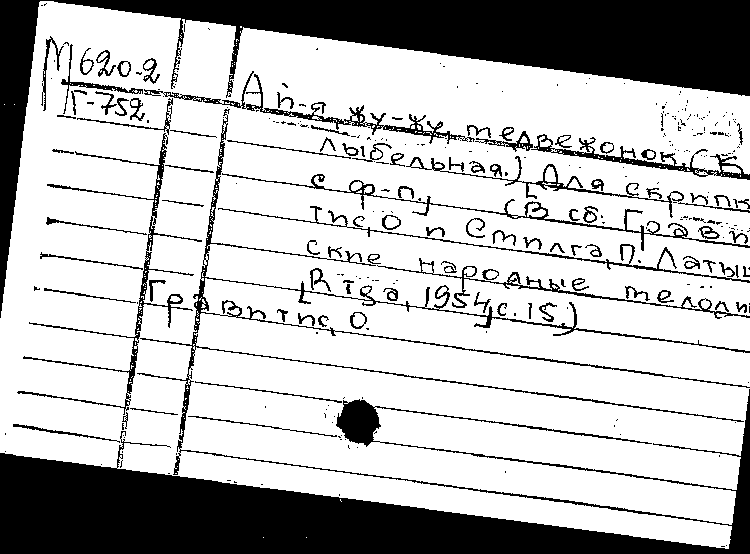 М620-2
Г-752.
Ай-я, жу-жу, медвежонок. (К
лыбельная.) [Для скрипк
с ф-п.] (В сб: Гравит
тис, О и Стилга, П. Латыш
ские народные мелоди
[Rīga, 1954, с. 15.)
Гравитис, О.